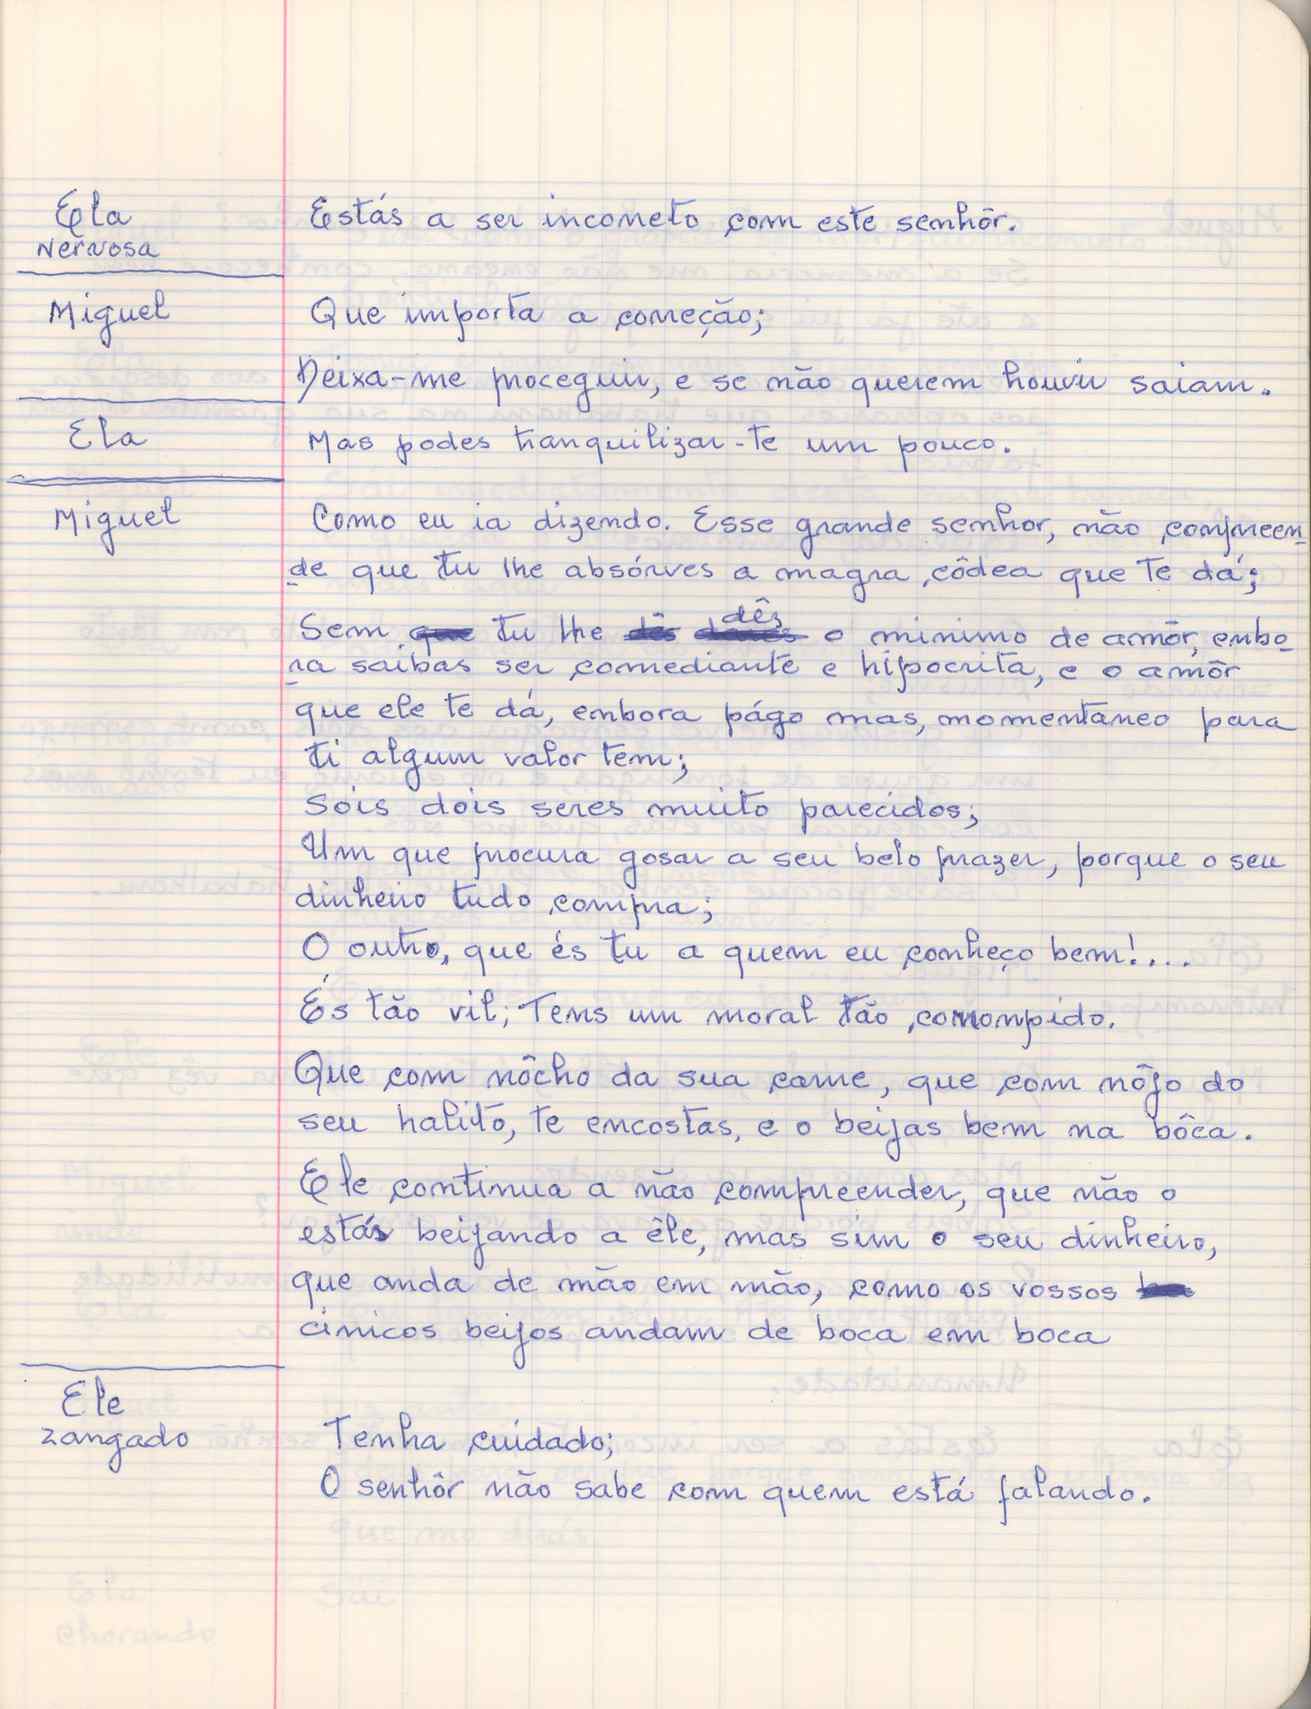 Ela
Nervosa
Estás a ser incorreto com este senhôr.
Miguel
Que importa a correção;
Deixa-me proceguir, e se não querem houvir saiam.
Ela
Mas podes tranquilizar-te um pouco.
Miguel
Como eu ia dizendo. Esse grande senhor, não compreen-
de que tu lhe absórves a magra côdea que te dá;
Sem que tu lhe dês dares dês o minimo de amôr, embo-
ra saibas ser comediante e hipocrita, e o amôr
que ele te dá, embora págo mas, momentaneo para
ti algum valor tem;
Sois dois seres muito parecidos;
Um que procura gosar a seu belo prazer, porque o seu
dinheiro tudo compra;
O outro, que és tu a quem eu conheço bem!....
És tão vil; Tens um moral tão corrompido.
Que com nôcho da sua carne, que com nôjo do
seu halito, te encostas, e o beijas bem na bôca.
Ele continua a não compreender, que não o
estás beijando a êle, mas sim o seu dinheiro,
que anda de mão em mão, como os vossos
cinicos beijos andam de boca em boca
Ele
zangado
Tenha cuidado;
O senhôr não sabe com quem está falando.